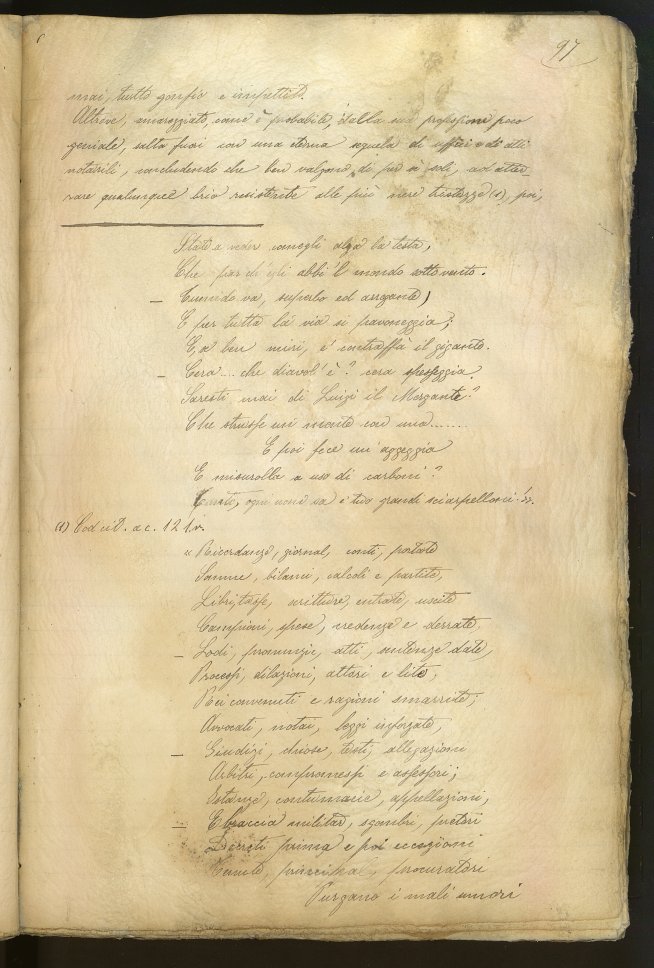 97
mai, tutto gonfio e impettito.
Altrove, amareggiato, com'è probabile, dalla sua professione poco
geniale, salta fuori con una eterna sequela di uffici e di atti
notarili, concludendo che ben valgono, di per sè soli, ad atter-
rare qualunque brio resistente alle più nere tristezze (1), poi,
State a veder com'egli alza la testa,
Che par ch'egli abbi 'l mondo sotto vento.
— va, superbo ed arrogante,
E per tutta la via si pavoneggia;
E, a ben miri, e' contraffà il gigante.
— Cera.... che diavol'è? cera spesseggia.
Saresti mai di Luigi il Morgante?
Che strusse un monte con una........
E poi fece un'
E misurolla a uso di carboni?
ogni uom sa e' tuo grandi sciarpelloni!».
(1) Cod cit. a c. 121v.
« Ricordanze, giornal, conti, portate
Somme, bilanci, calcoli e partite,
Libri, tasse, scritture, entrate, uscite
Campioni, spese, credenze e derrate,
— Lodi, pronunzie, atti, sentenze date,
Processi, dilazioni, attori e lite,
Rei convenuti e ragioni smarrite;
Avvocati, notai, leggi inforzate,
— Giudizi, chiose, testi, allegazioni
Arbitri, compromessi e assessori;
Istanze, contumacie, appellazioni,
— E braccia militar, sgombri, pretori
Decreti prima e poi eccezioni
principal, procuratori
Purgano i mali umori